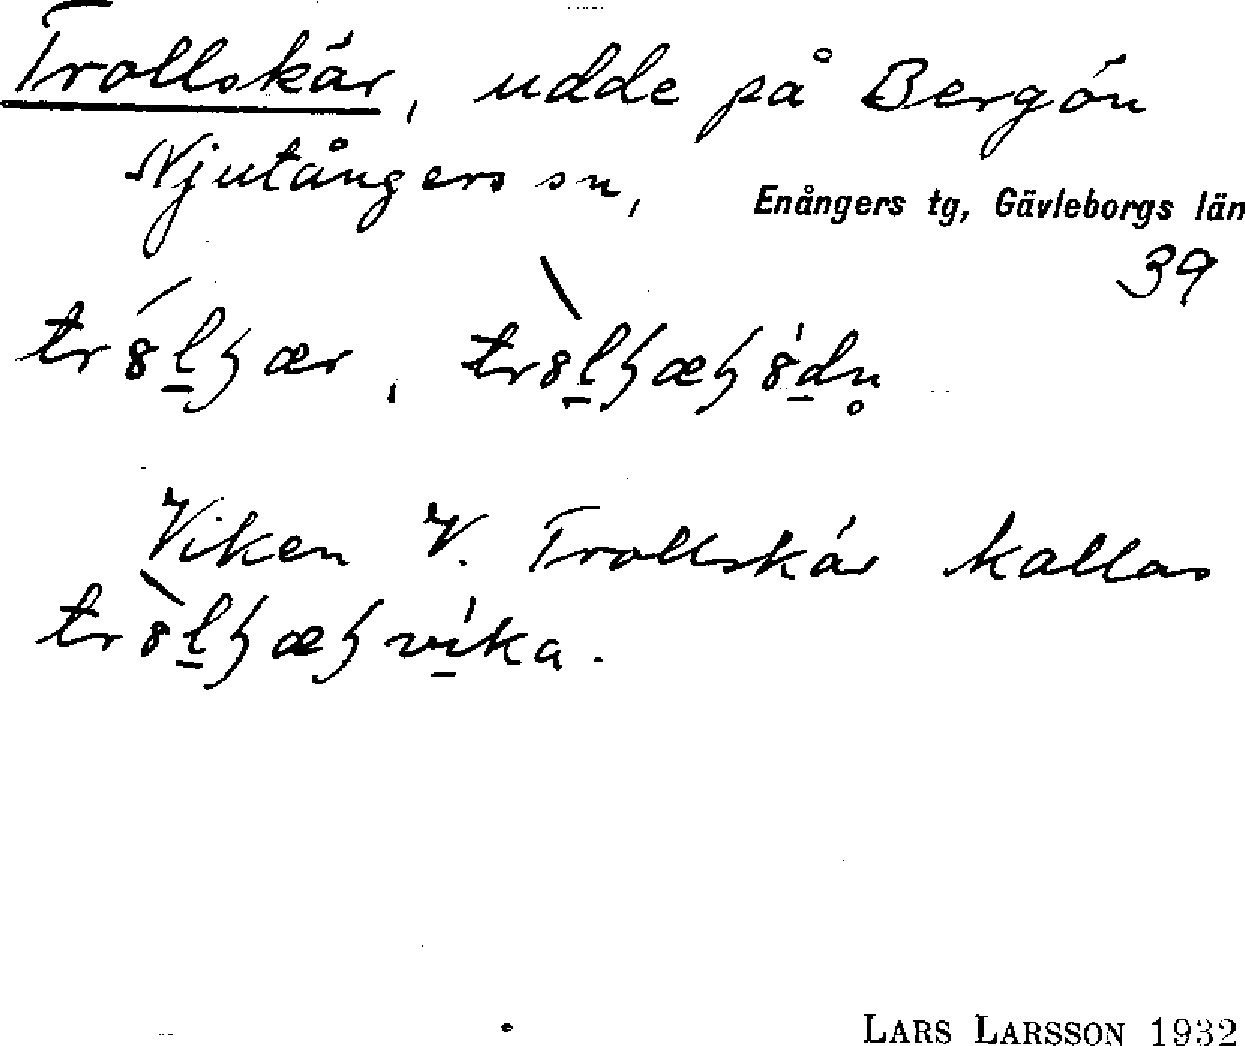 Trollskär, udde på Bergön
Njutångers sn, Enångers tg, Gävleborgs län
39
Viken V. Trollskär kallas
LARS LARSSON 1932